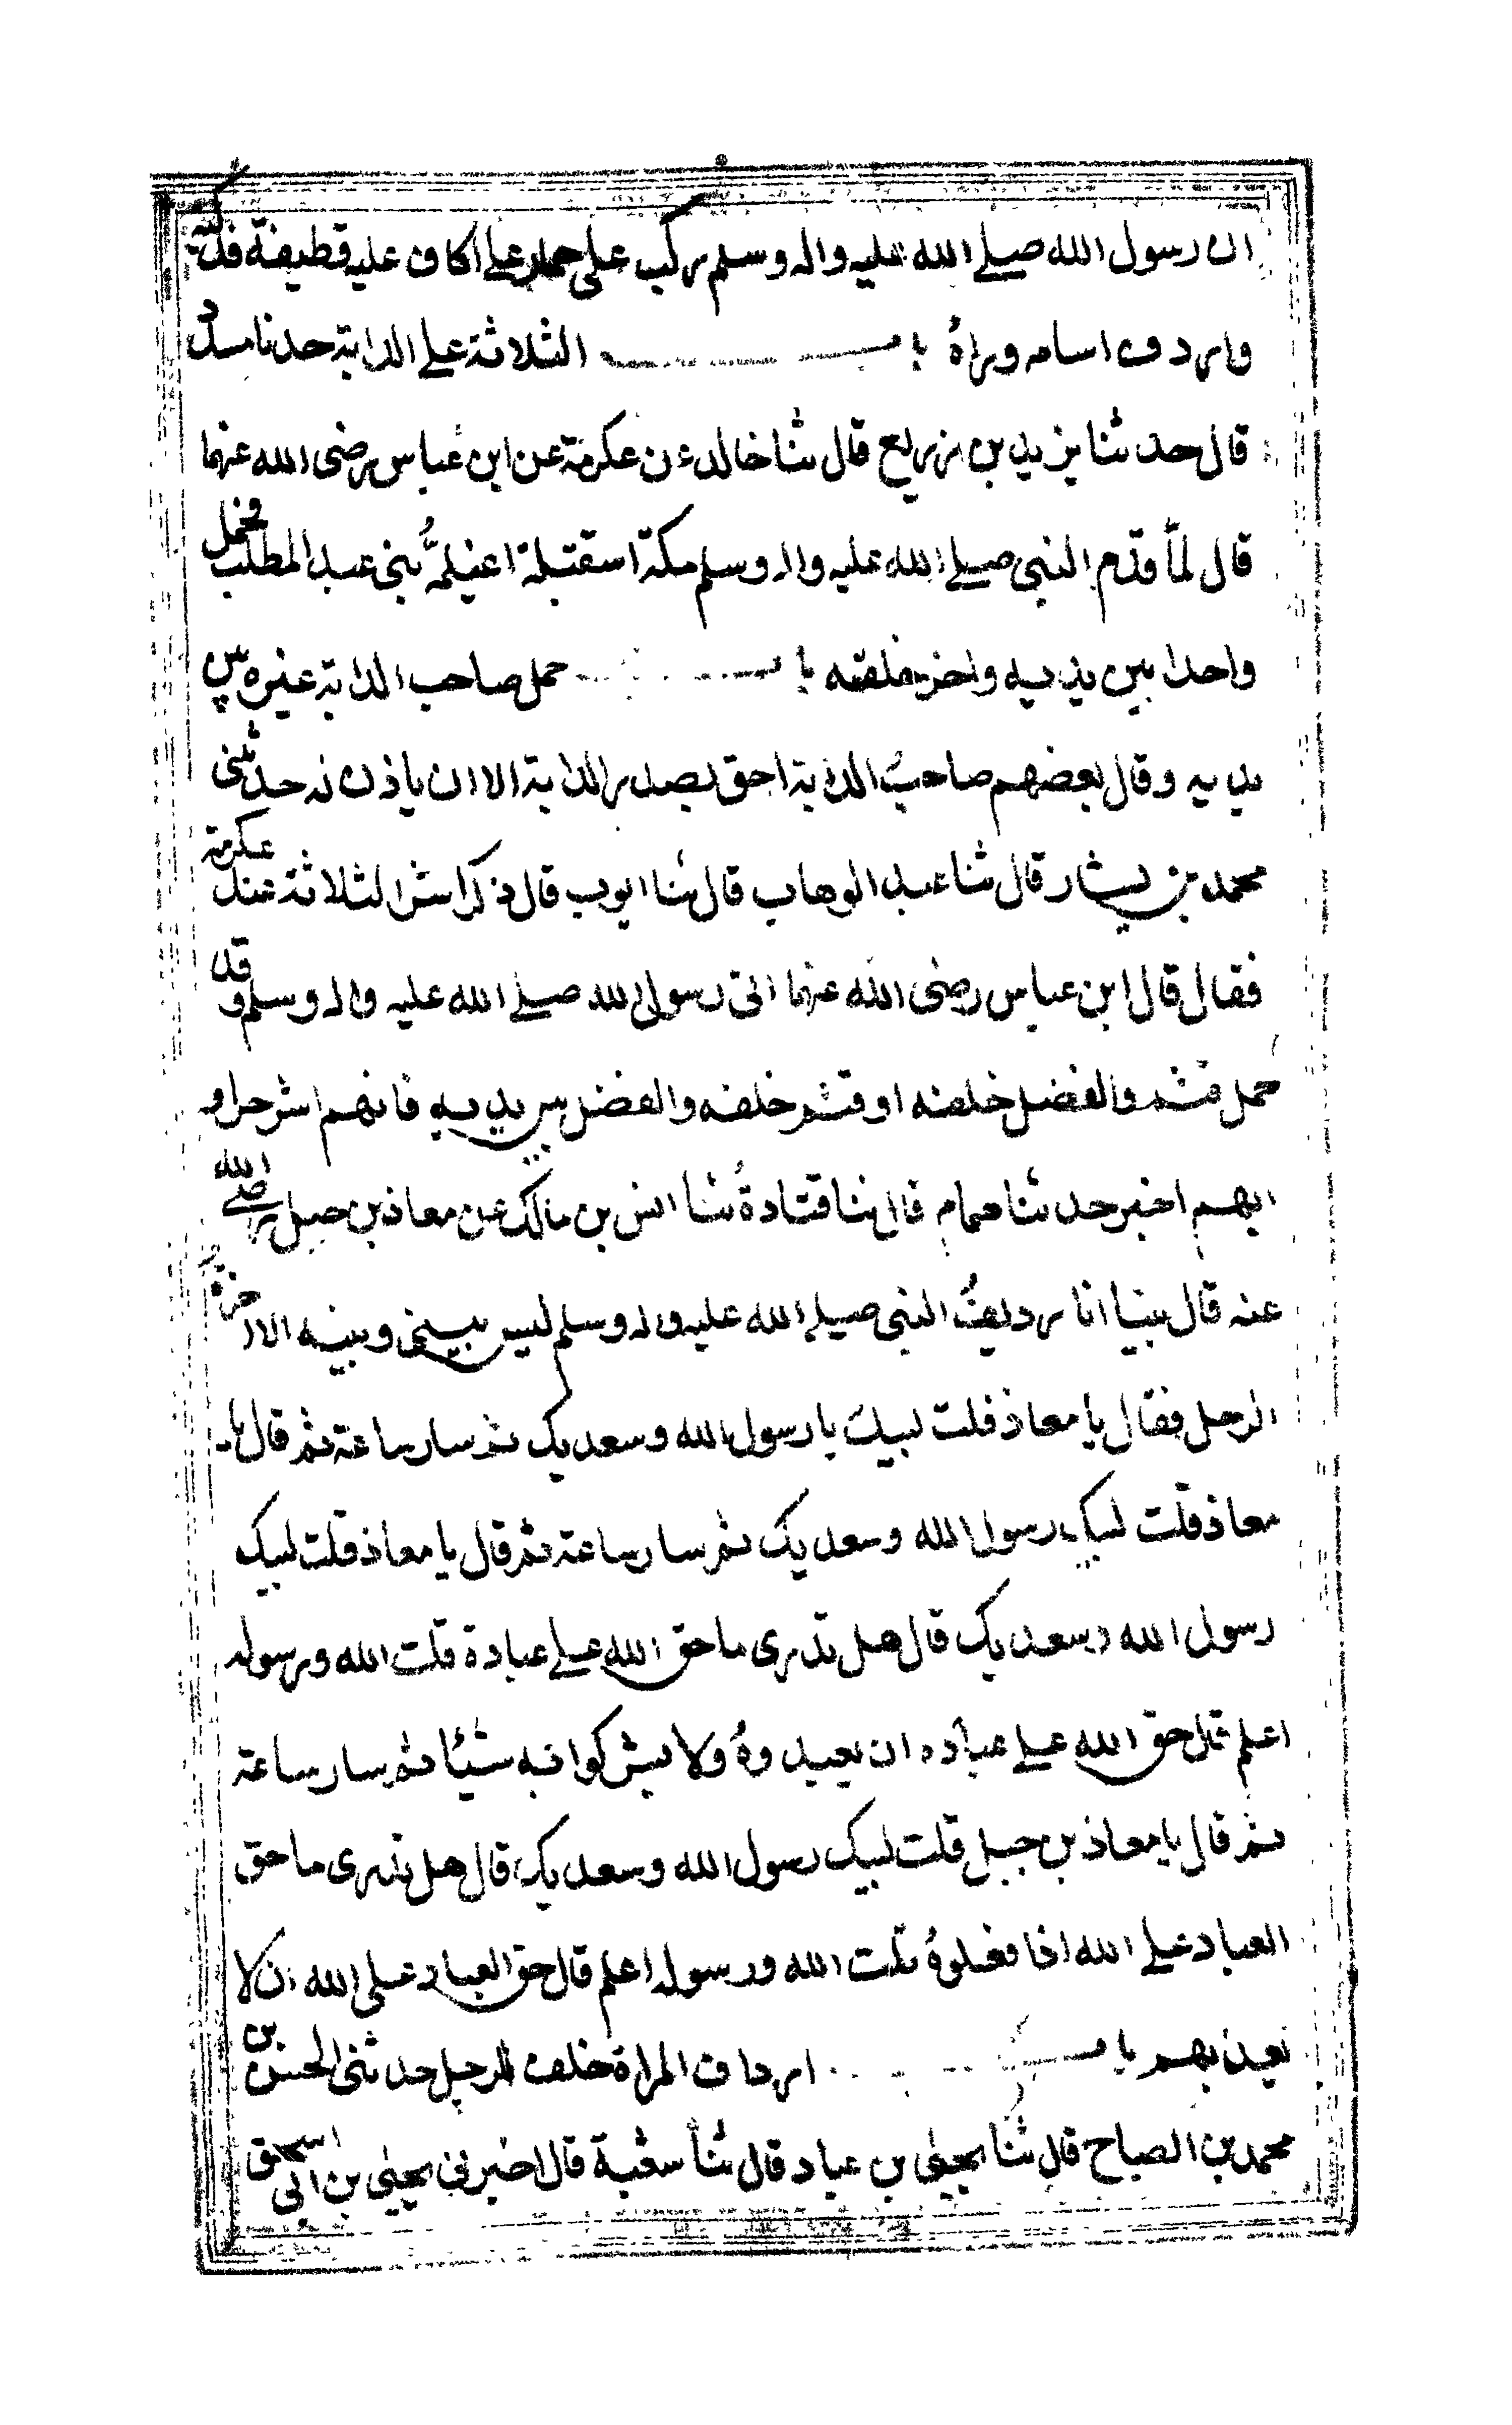 ان رسول الله صلے الله عليه واله وسلم ركب على حمار علے اكاف عليه قطيفة فدكية
واردف اسامه وراهٔ باب الثلاثة علے الدابة حدثنا مسدد
قال حدثنا يزيد بن زريع قال ثنا خالد عن عكرمة عن ابن عباس رضى الله عنهما
قال لمّا قدم النبى صلے الله عليه واله وسلم مكة استقبلة اغيلمة بنى عبد المطلب فحمل
واحدا بين يديه واخر خلفه باب حمل صاحب الدابة غيره بين
يديه وقال بعضهم صاحب الدابة احق بصدر الدابة الا ان ياذن له حدثنى
محمد بن بشار قال ثنا عبد الوهاب قال ثنا ايوب قال ذكر اشر الثلاثة عند عكرمة
فقال قال ابن عباس رضى الله عنهما اتى رسول الله صلے الله عليه واله وسلم وقد
حمل قثم والفضل خلفه او قثم خلفه والفضل بين يديه فايهم اشر او
ايهم اخير حدثنا همام قال ثنا قتادة ثنا انس بن مالك عن معاذ بن جبل رضے الله
عنه قال بينا انا رديف النبى صلے الله عليه واله وسلم ليس بينى وبينه الا اخرة
الرحل فقال يا معاذ قلت لبيك يا رسول الله وسعديك ثم سار ساعة ثم قال يا
معاذ قلت لبيك رسول الله وسعديك ثم سار ساعة ثم قال يا معاذ قلت لبيك
رسول الله وسعديك قال هل تدرى ما حق الله علے عبادة قلت الله ورسوله
اعلم قال حق الله علے عباده ان يعبدوهٔ ولا يشركوا به شيئا ثم سار ساعة
ثم قال يا معاذ بن جبل قلت لبيك رسول الله وسعديك قال هل تدرى ما حق
العباد علے الله اذا فعلوهٔ قلت الله ورسوله اعلم قال حق العباد على الله ان لا
يعذبهم باب ارداف المراة خلف الرجل حدثنى الحسن بن
محمد بن الصباح قال ثنا يحيى بن عباد قال ثنا شعبة قال اخبرنى يحيى بن ابى اسحق